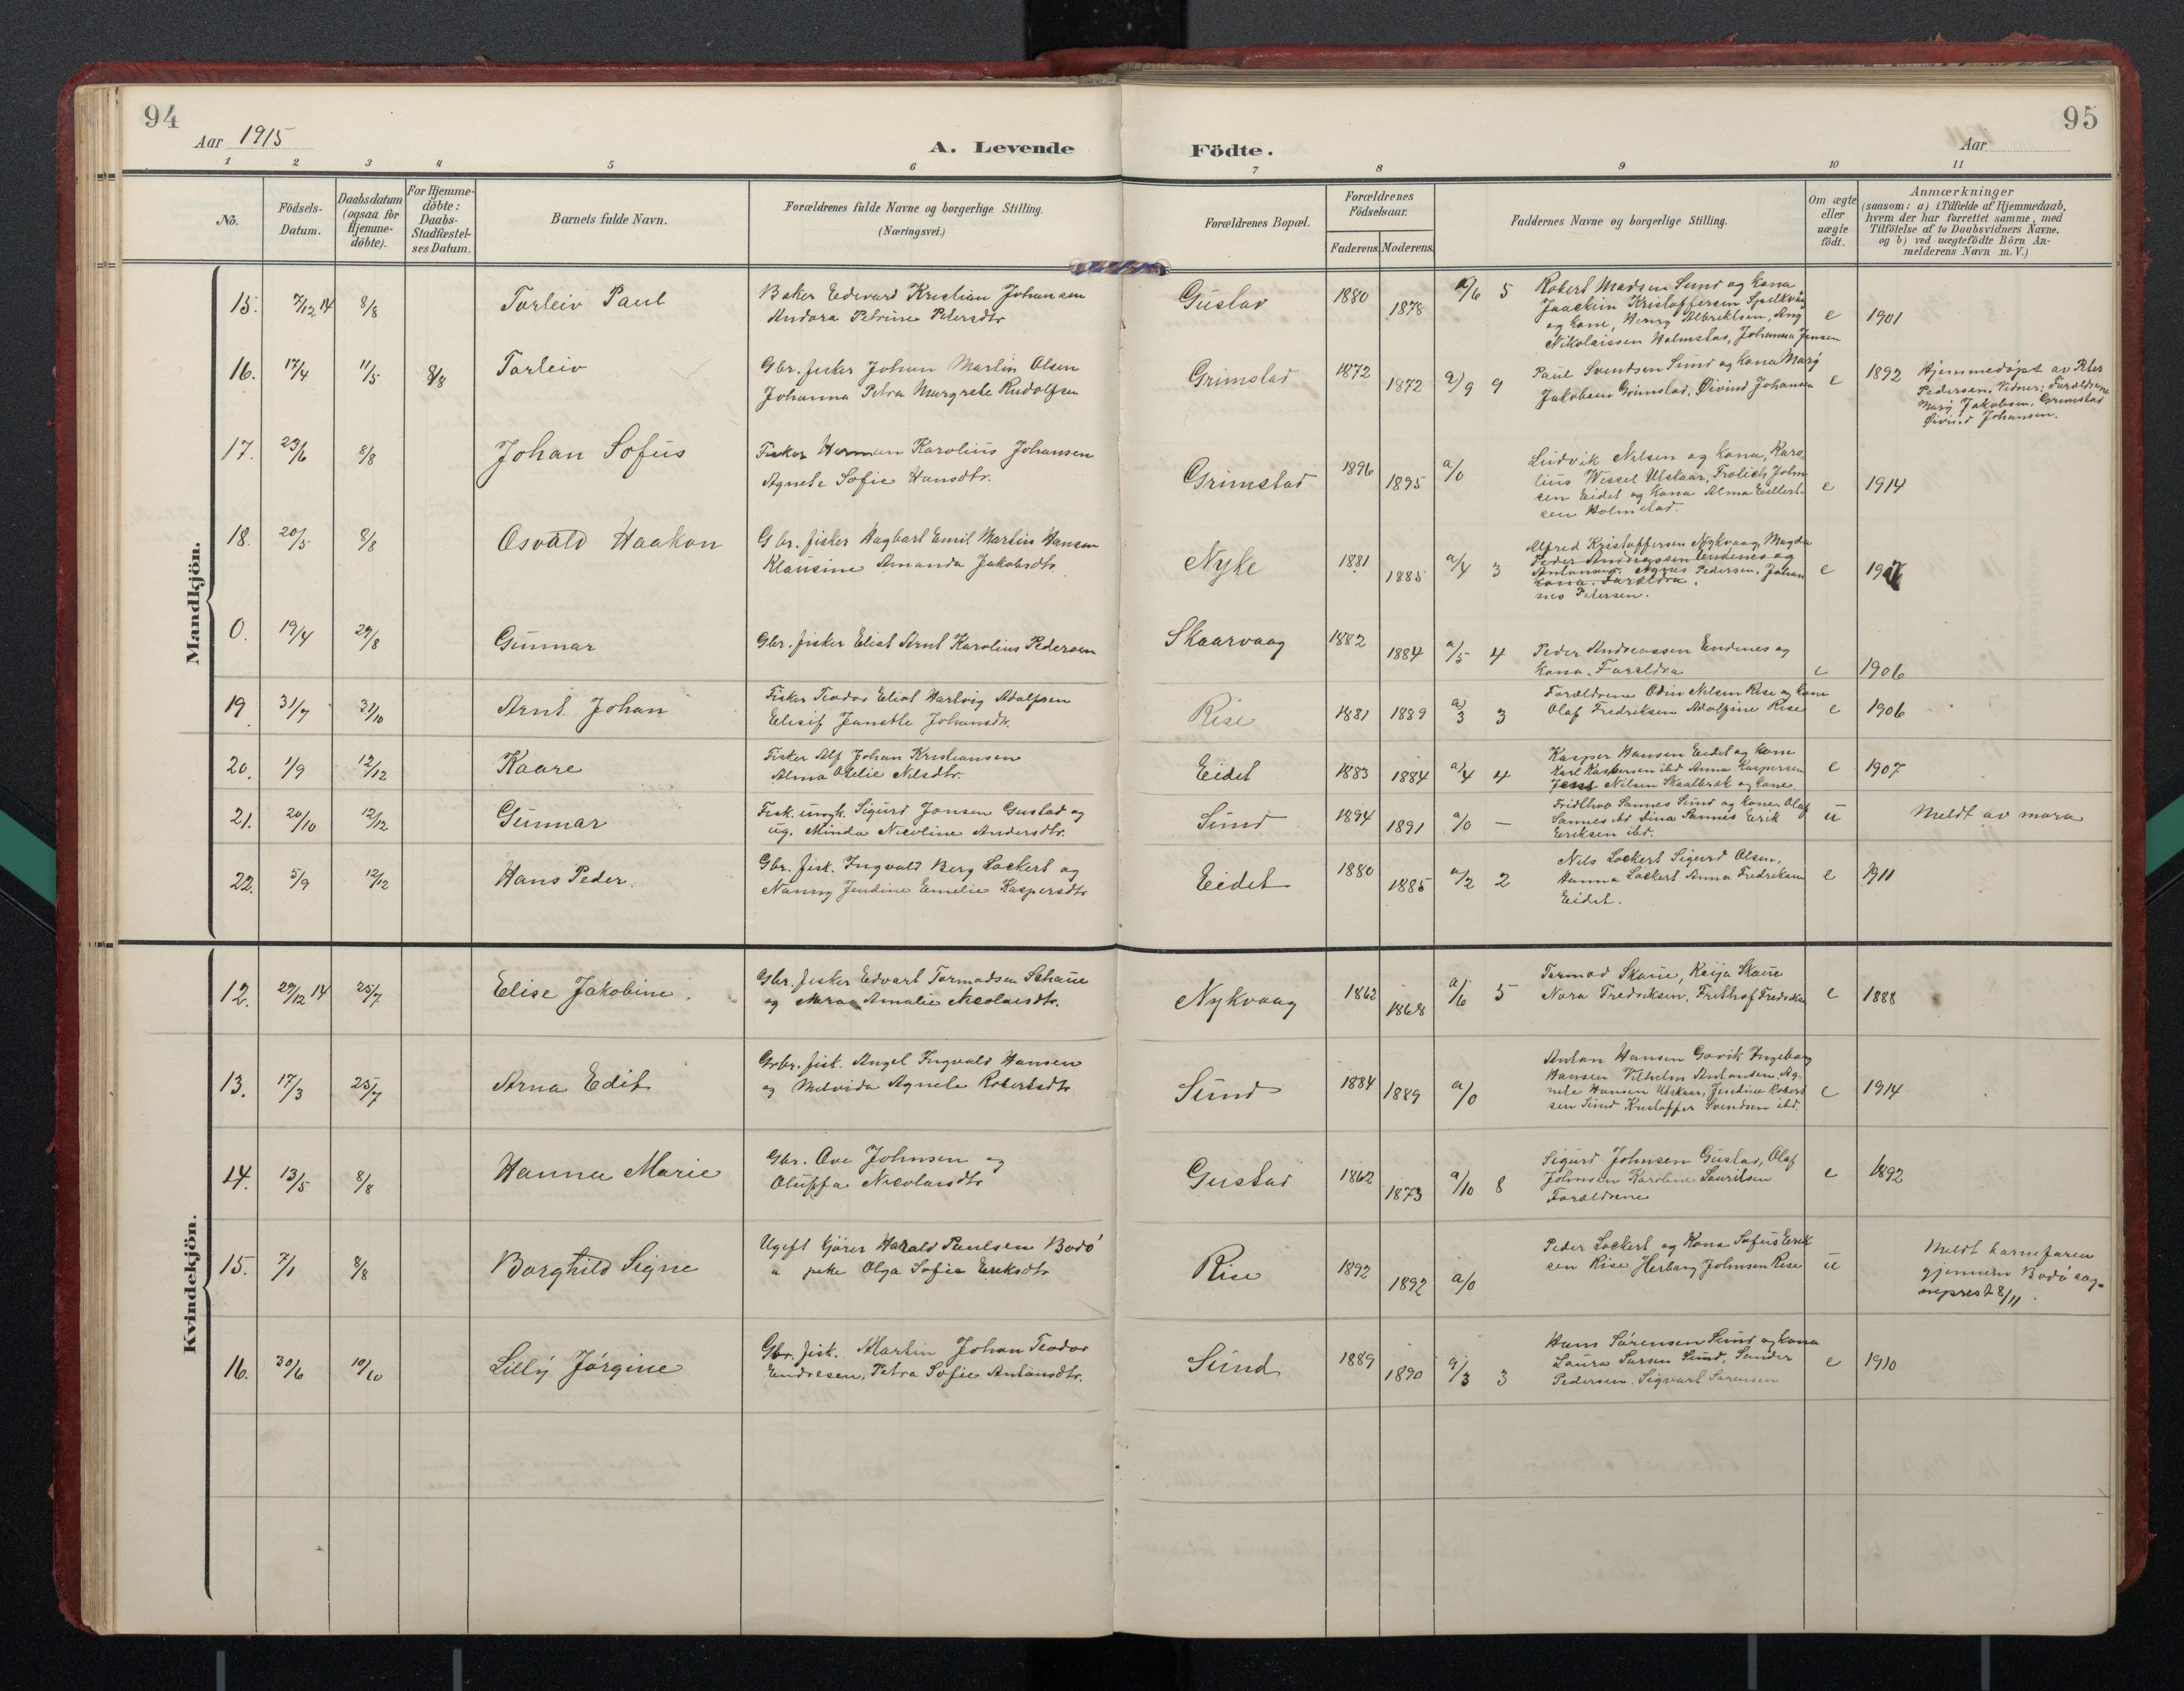 94
Aar 1915
A. Levende
1 2 3 4 5 6
No.
Födsels-
Datum.
Daabsdatum
(ogsaa for
Hjemme-
döbte).
For Hjemme-
döbte:
Daabs-
Stadfæstel-
ses Datum.
Barnets fulde Navn.
Forældrenes fulde Navne og borgerlige Stilling.
(Næringsvei.)
95
Aar
Födte.
7 8 9 10 11
Forældrenes Bopæl.
Forældrenes
Födselsaar.
Faderens. Moderens.
Faddernes Navne og borgerlige Stilling.
Om ægte
eller
uægte
födt.
Anmærkninger
(saasom: a) i Tilfælde af Hjemmedaab,
hvem der har forrettet samme, med
Tilföielse af to Daabsvidners Navne,
og b) ved uægtefödte Börn An-
melderens Navn m. V.)
Mandkjön.
15. 7/12 14 8/8 Torleiv Paul
Baker Edevard Kristian Johansen
Andora Petrine Petersdtr
Gustad 1880 1878 a/6 5
Robert Madsen Sund og kona
Joackim Kristoffersen Spjelkvåg
og kone, Henry Albriktsen, Ang
Nikolaissen Holmstad, Johanna Jensen
e 1901
16. 17/4 11/5 8/8 Torleiv
Gbr. fisker Johan Martin Olsen
Johanna Petra Margrete Rudolfsen
Grimstad 1872 1872 a/9 9
Paul Svendsen Sund og kona Mary
Jakobsen Grimstad, Øivind Johansen
e 1892
Hjemmedøpt av Peter
Pedersen. Vidner: Forældrene
Mary Jakobsen, Grimstad
Øivind Johansen.
17. 23/6 8/8 Johan Sofus
Fisker Herman Karolius Johansen
Agnete Sofie Hansdtr.
Grimstad 1896 1895 a/0
Ludvik Nilsen og kona, Karo
lius Wessel Utskaar, Frolich John
sen Eidet og kona Alma Eellert-
sen Holmstad.
e 1914
18. 20/5 8/8 Osvald Haakon
Gbr. fisker Hagbart Emil Martin Hansen
Klausine Amanda Jakobsdtr.
Nyke 1881 1885 a/4 3
Alfred Kristoffersen Nykvaag, Magda
Peder Andreassen Endenes og
Antonsen. Agnes Pedersen, Johan
kona. Forældra.
nes Petersen.
e 1907
0. 19/4 29/8 Gunnar
Gbr. fisker Eliot Arnt Karolius Pedersen
Skaarvaag 1882 1884 a/5 4
Peder Andreassen Endenes og
kona. Forældra
e 1906
19 31/7 31/10 Arnt Johan
Fisker Teodor Eliot Hartvig Adolfsen
Elisif Jeanette Johansdtr.
Rise 1881 1889 a/3 3
Forældrene Odin Nilsen Rise og kone
Olaf Fredriksen Adolfine Rise
e 1906
20. 1/9 12/12 Kaare
Fisker Alf Johan Kristiansen
Alma Otelie Nilsdtr.
Eidet 1883 1884 a/4 4
Kasper Hansen Eidet og kone
Karl Kaspersen ibd Anna Kaspersen
Jens Nilsen Skaalbrek og kone.
e 1907
21. 20/10 12/12 Gunnar
Fisk. ungk. Sigurd Jonsen Gustad og
ug. Minda Nicoline Andersdtr.
Sund 1894 1891 a/0 —
Fridthov Sannes Sund og kone, Olaf
Sannes ibd Dina Sannes Erik
Eriksen ibd.
u
Meldt av mora
22. 5/9 12/12 Hans Peder.
Gbr. fisk. Ingvald Berg Lockert og
Nanny Jendine Emelie Kaspersdtr
Eidet 1880 1885 a/2 2
Nils Lockert Sigurd Olsen,
Hanna Lockert Anna Fredriksen
Eidet.
e 1911
Kvindekjön.
12. 29/12 14 25/7 Elise Jakobine
Gbr. fisker Edvart Tormodsen Schaue
og Amalie Nicolaisdtr.
Nykvaag 1862 1868 a/6 5
Tormod Skaue, Keija Skaue
Nora Fredriksen, Frithof Fredriksen
e 1888
13. 17/3 25/7 Arna Edit
Gbr. fisk. Angel Ingvald Hansen
og Melvida Agnete Robertsdtr
Sund 1884 1889 a/0
Anton Hansen Govik Ingeborg
Hansen Vilhelm Antonsen, Ag-
nete Hansen Utskaar, Jendine Robert
sen Sund Kristoffer Svendsen ibd.
e 1914
14. 13/5 8/8 Hanna Marie
Gbr. Ove Johnsen og
Oluffa Nicolaisdtr
Gustad 1862 1873 a/10 8
Sigurd Johnsen Gustad, Olaf
Johnsen Karoline Lauritsen
Forældrene
e 1892
15. 7/1 8/8 Borghild Signe
Ugift Gjører Harald Paulsen Bodö
u pike Olga Sofie Eriksdtr
Rise 1892 1892 a/0
Peder Lockert og Kona Sofus Erik
sen Rise Herborg Johnsen Rise
u
Meldt barnefaren
gjennem Bodö sog-
neprest 8/11.
16. 30/6 10/10 Lilly Jörgine
Gbr. fisk. Martin Johan Teodor
Endresen, Petra Sofie Antonsdtr.
Sund 1889 1890 a/3 3
Hans Sörensen Sund og kona
Laura Larsen Sund, Sander
Pedersen. Sigvart Sorensen
e 1910